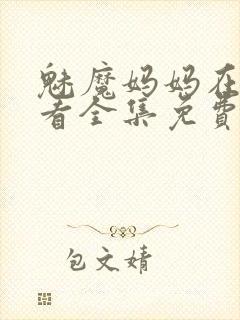 魅魔妈妈在
看全集免费
包文婧